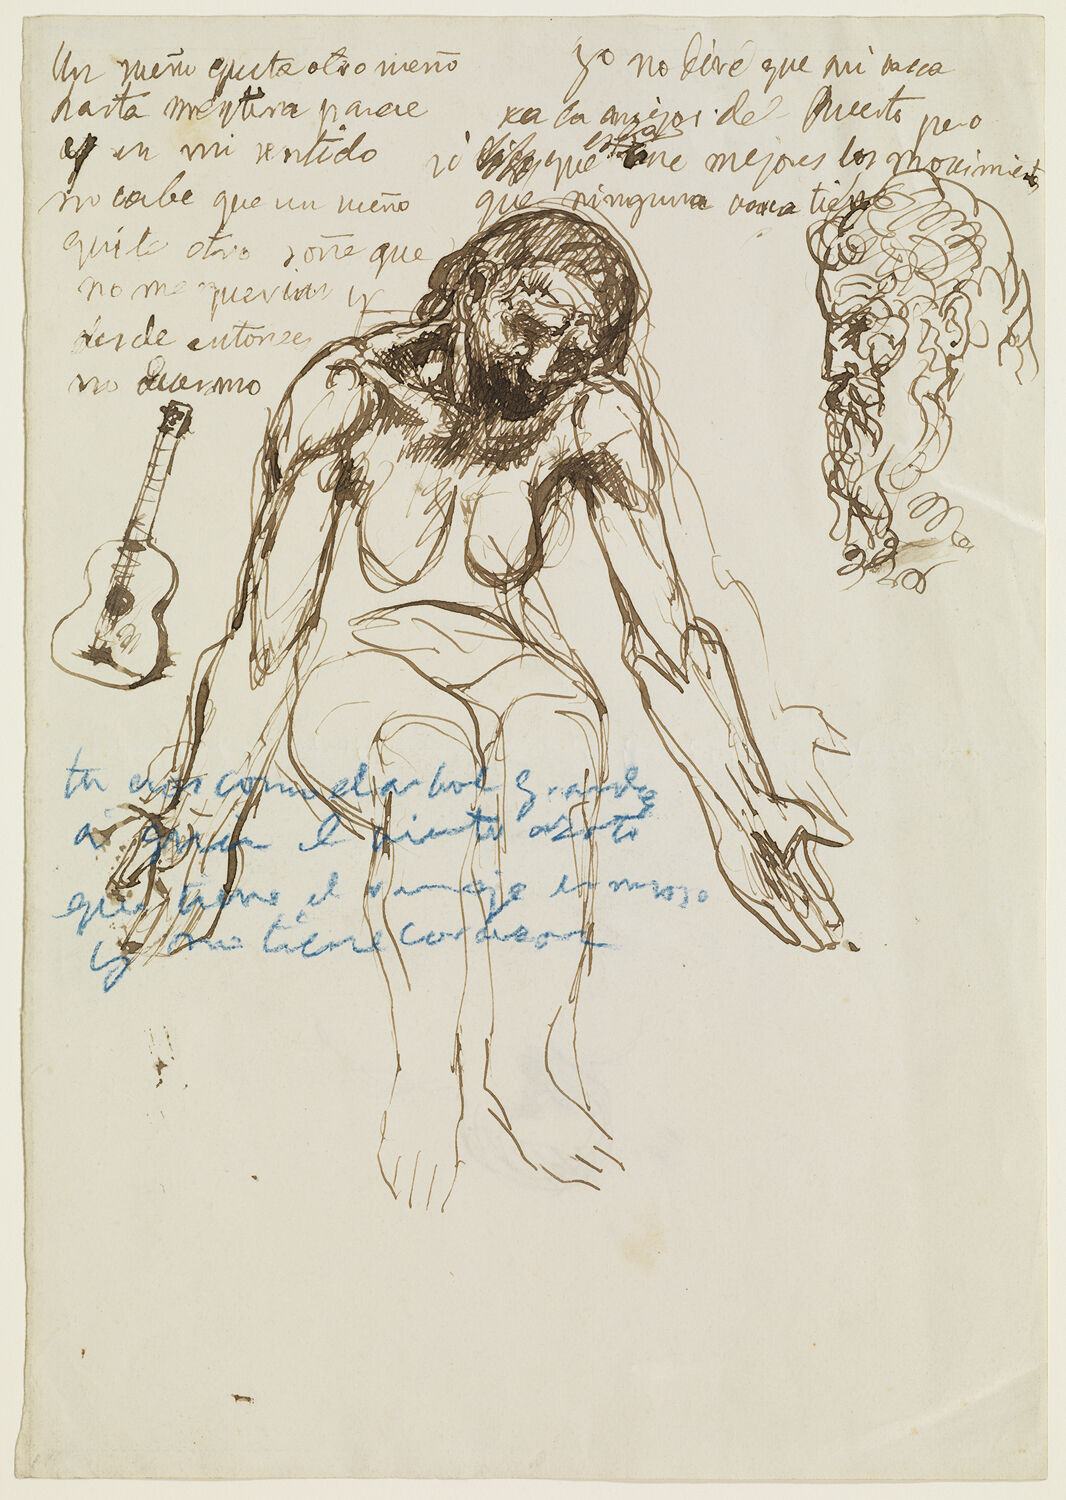 Un sueño quita otro sueño
hasta mentira parece
y en mi sentido
no cabe que un sueño
quite otro soñe que
no me querias y
desde entonses
no duermo
yo no diré que mi barca
sea la mejor del Puerto pero
si que tiene mejores los movimientos
que ninguna barca tiene
tu eres como el arbol grande
a quien el viento azotó
que tiene el ramaje ermoso
y no tiene corazon